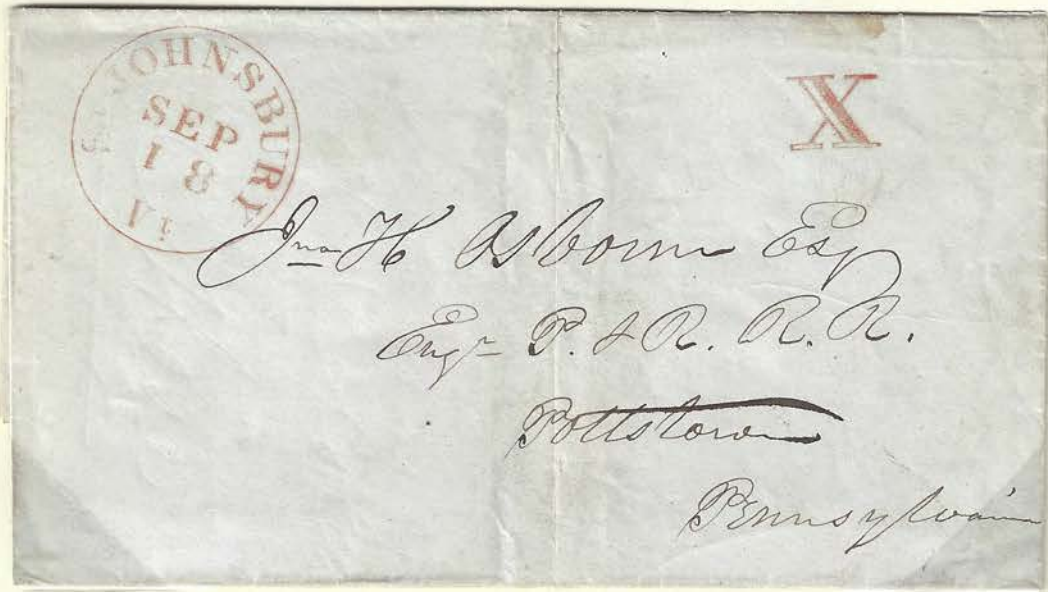 ST. JOHNSBURY
SEP
18
Vt
X
Jno H Osborne Esq
Engr P. & R. R. R.
Pottstown
Pennsylvania